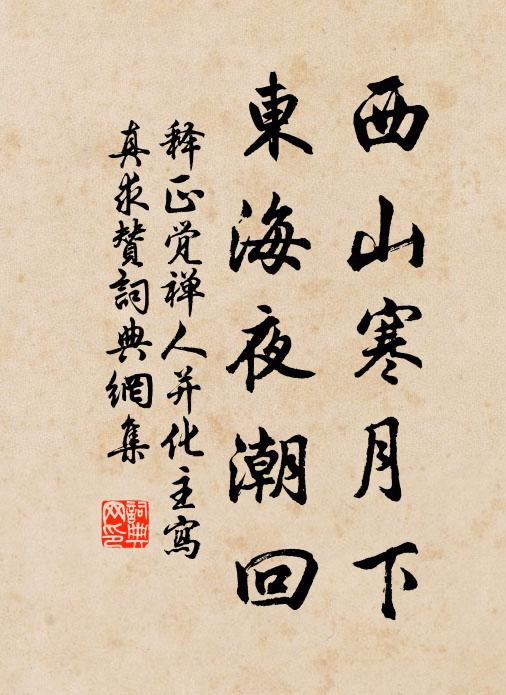 西山寒月下
東海夜潮回
释正觉禅人并化主寫
真求贊詞典網集
詞典
网印